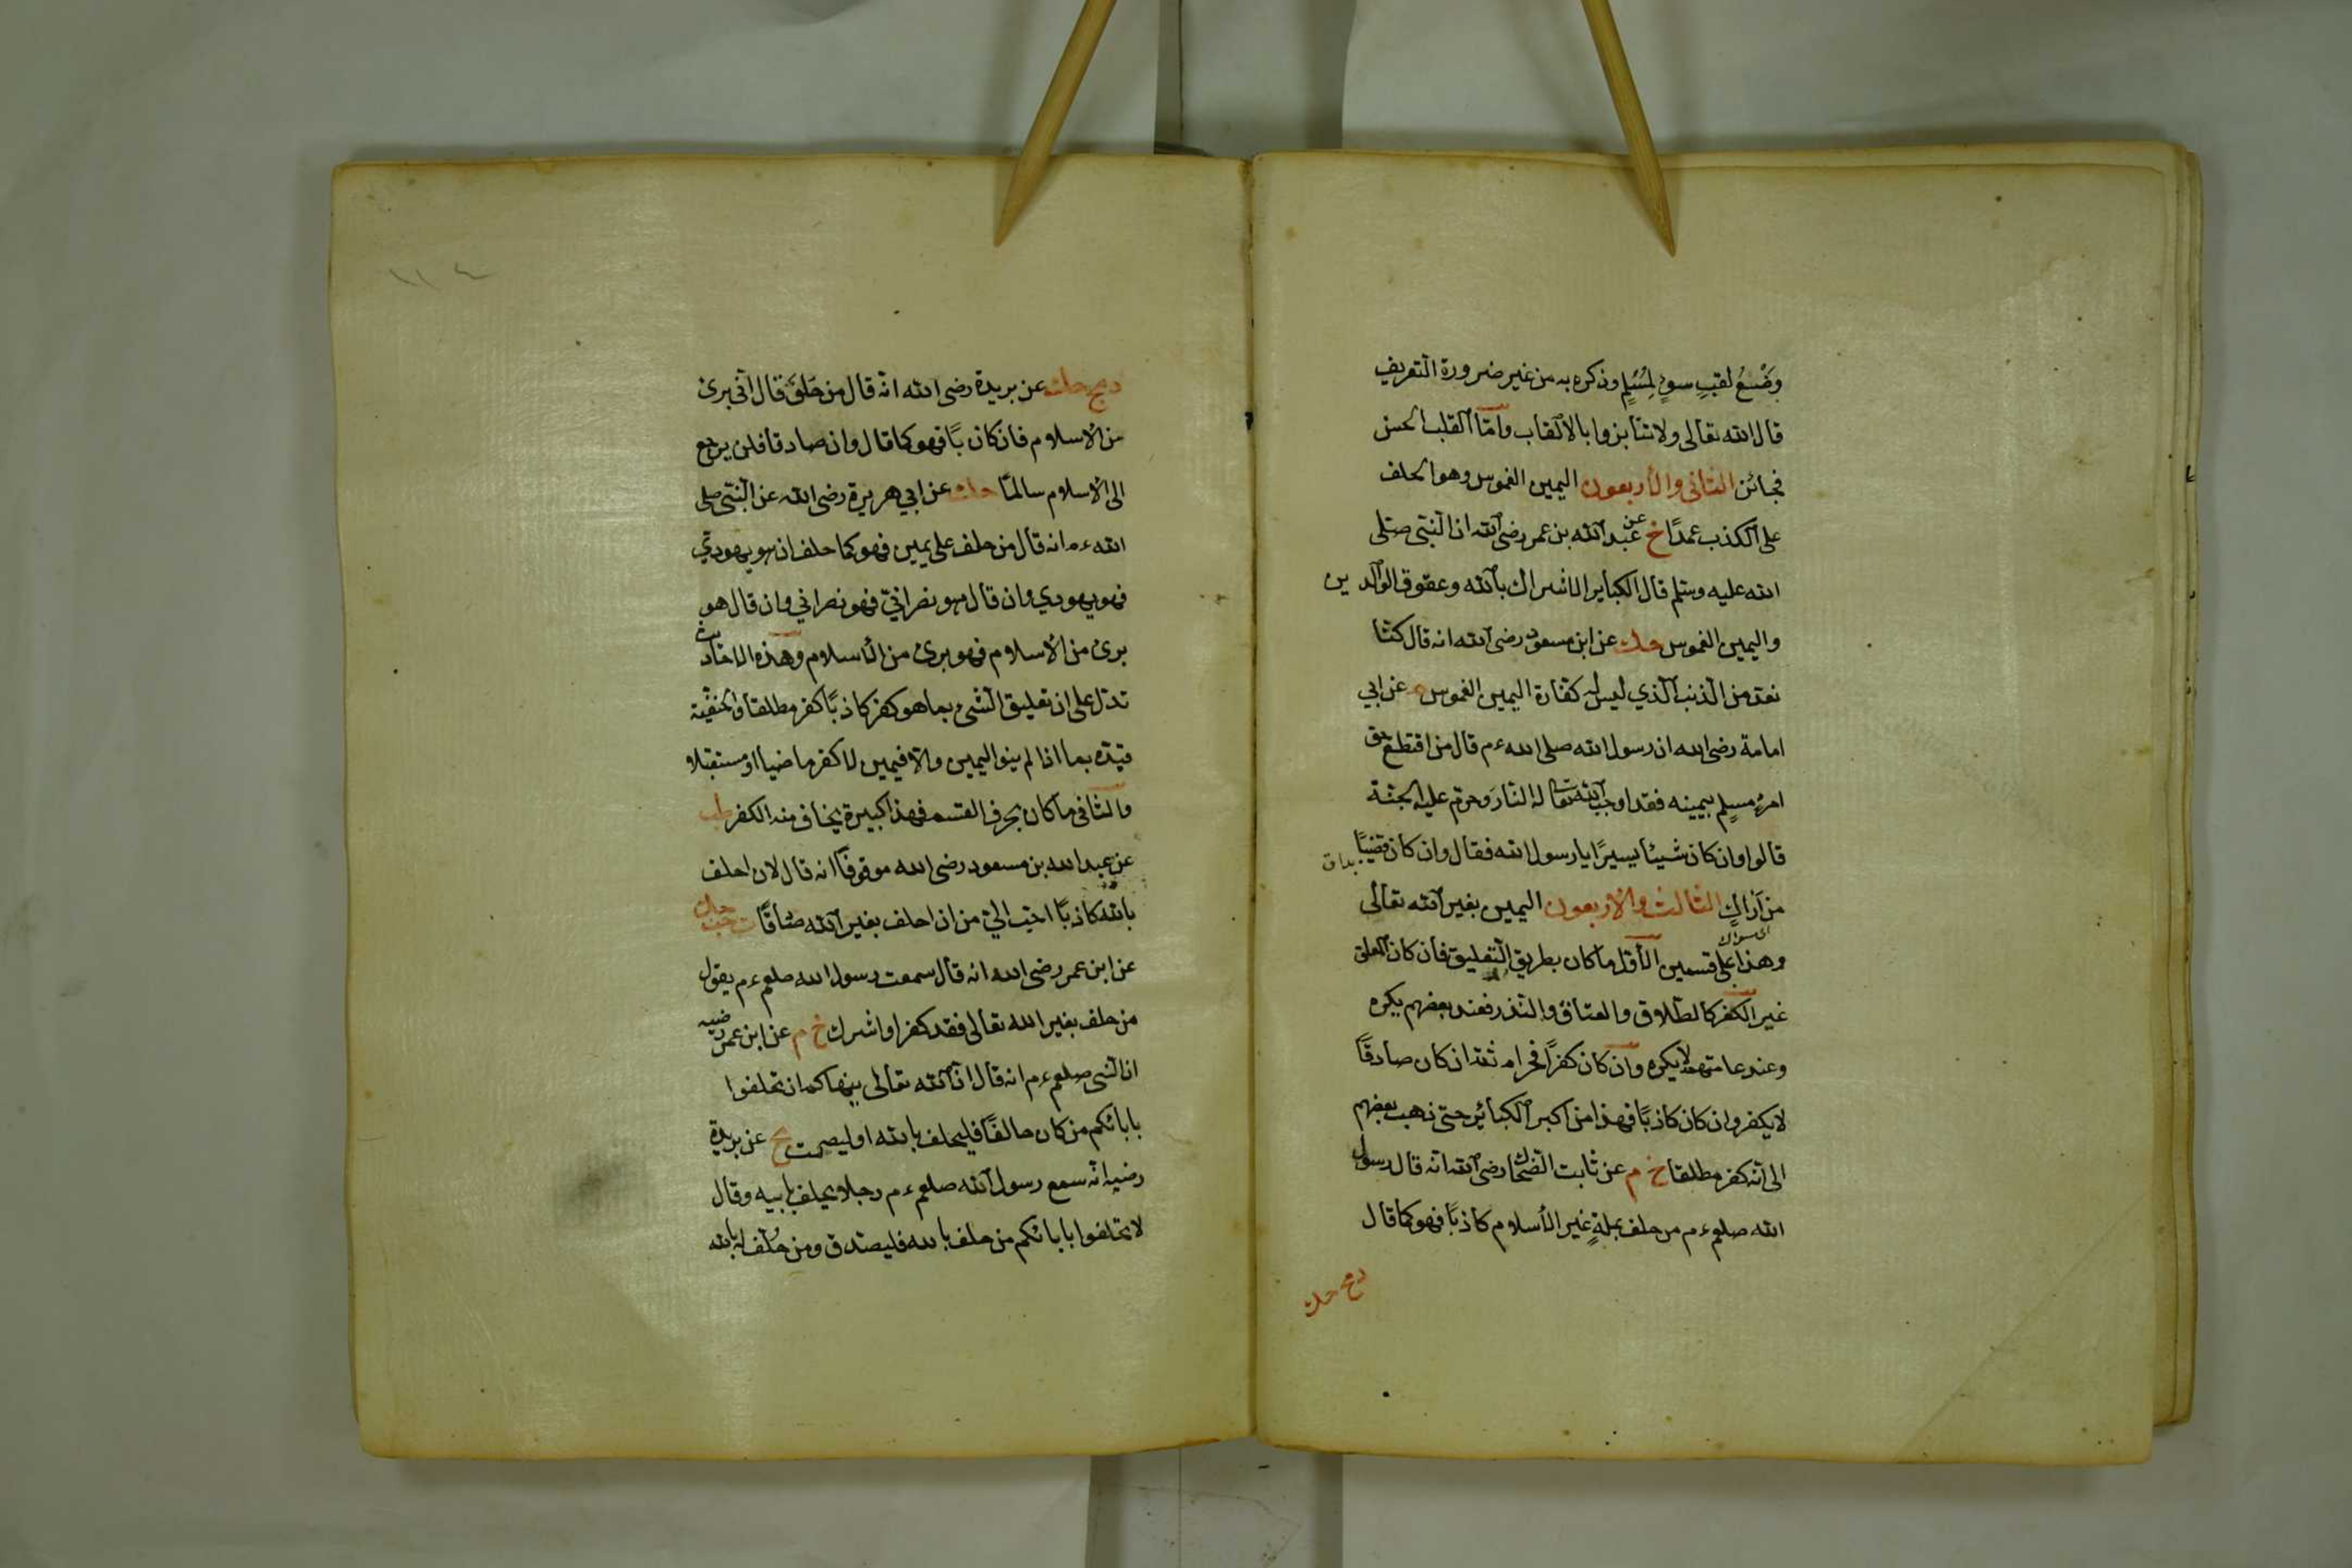 وضع لقبٍ سوءٍ لمسلمٍ وذكره به من غير ضرورة التعريف
قال الله تعالى ولا تنابزوا بالالقاب وامّا اللقب الحسن
فجائن الثانى والأربعون اليمين الغموس وهو الحلف
على الكذب عمدًا خ عن عبد الله بن عمر رضى الله ان النبى صلى
الله عليه وسلم قال الكبأير الاشراك بالله وعقوق الوالدين
واليمين الغموس حك عن ابن مسعود رضى الله انه قال كنّا
نعدّ من الذنب الّذي ليس له كفّارة اليمين الغموس م عن ابي
امامة رضى الله ان رسول الله صلى الله ءم قال من اقتطع حق
امرءٍ مسلمٍ بيمينه فقد اوجب الله تعا له النّار وحرّم عليه الجنّة
قالوا وان كان شيئا يسيرًا يا رسول الله فقال وان كان قضيبًا
من اراكٍ الثالث والاربعون اليمين بغير الله تعالى
اى سواك
وهذا على قسمين الأوّل ما كان بطريق التّعليق فأن كان المعلق
غير الكفر كالطّلاق والعتاق والنّذر فعند بعضهم يكره
وعند عامتهم لا يكره وان كان كفرًا فحرام ثمّ ان كان صادقًا
لا يكفر وان كان كاذبًا فهذا من اكبر الكبائر حتى ذهب بعضهم
الى انّه كفر مطلقا خ م عن ثابت الضحّاك رضى الله انّه قال رسول
الله صلعم ءم من حلف بملةٍ غير الأسلام كاذبًا فهو كما قال
دمج حك
١١٤
دمج حك عن بريدة رضى الله انّه قال من حلف قال انّى برئ
من الاسلام فان كان بًا فهو كما قال وان صادقا فلن يرجع
الى الاسلام سالمًا حك عن ابي هريرة رضى الله عن النّبىّ صلى
الله ءم انه قال من حلف على يمين فهو كما حلف ان هو يهوديّ
فهو يهودي وان قال هو نصرانيّ فهو نصراني وان قال هو
برئ من الاسلام فهو برئ من الأسلام وهذه الاحاديث
تدلّ على ان تعليق الشئ بما هو كفر كاذبًا كفر مطلقا والحنفيّة
قيّده بما اذا لم ينو اليمين والّا فيمين لا كفر ماضيا او مستقبلا و
والثّانى ما كان بحرف القسم فهذا كبيرة يخاف منه الكفر طب
عن عبد الله بن مسعود رضى الله موقوفًا انه قال لان احلف
بالله كاذبًا احبّ اليّ من ان احلف بغير الله صادقًا ت حب حك
عن ابن عمر رضى الله انه قال سمعت رسول الله صلعم ءم يقول
من حلف بغير الله تعالى فقد كفر او اشرك خ م عن ابن عمر رضيه
ان النّبى صلعم ءم انه قال انّ الله تعالى ينهاكم ان تحلفوا
بابائكم من كان حالفًا فليحلف بالله او ليصمت مج عن بريدة
رضيه انّه سمع رسول الله صلعم ءم رجلا يحلف بابيه وقال
لا تحلفوا بابائكم من حلف بالله فليصدق ومن حُلّف له بالله